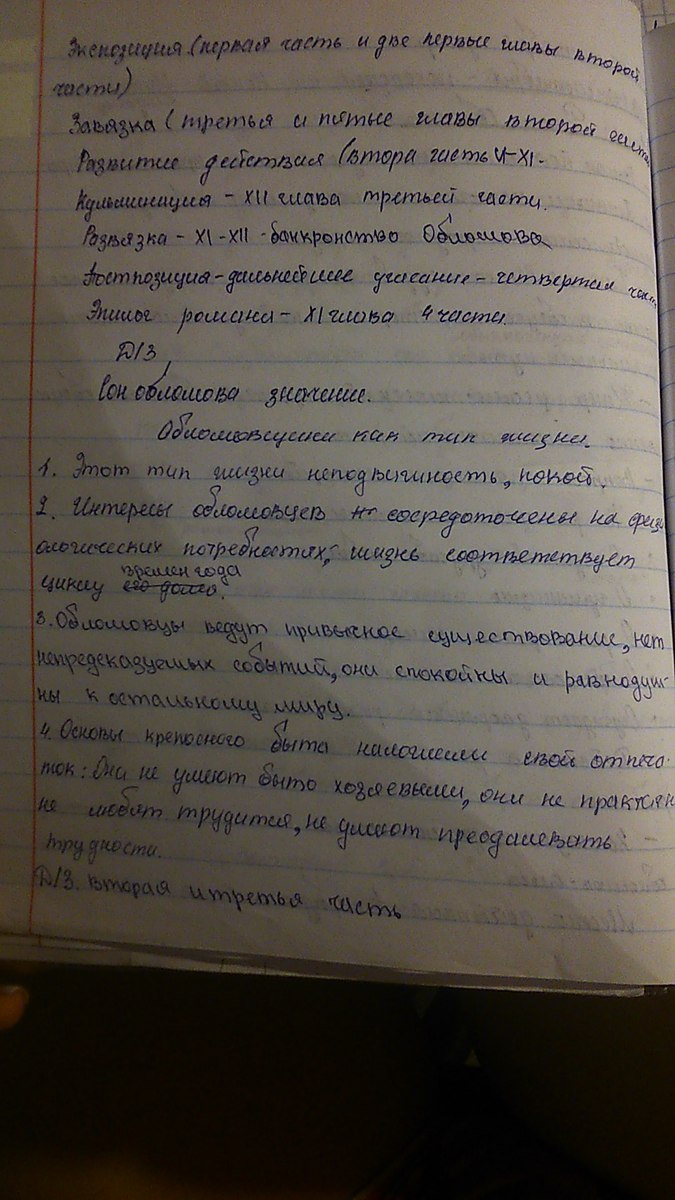 Экспозиция (первая часть и две первые главы второй
части)
Завязка (третья и пятые главы второй части
Развитие действия (втора часть VI-XI-
Кульминация - XII глава третьей части.
Развязка - XI-XII - банкронство Обломова
Постпозиция - дальнейшее угасание - четвертая часть
Эпилог романа - XI глава 4 части.
Д/З
Сон обломова значение.
Обломовщина как тип жизни.
1. Этот тип жизни неподвижность, покой.
2. Интересы обломовцев сосредоточены на физи
ологических потребностях, жизнь соответствует
времен года
циклу его долго.
3. Обломовцы ведут привычное существование, нет
непредсказуемых событий, они спокойны и равнодуш-
ны к остальному миру.
4. Основы крепосного быта наложили свой отпеча-
ток: Они не умеют быто хозяевыми, они не практич
не любят трудится, не умеют преодалевать
трудности.
Д/З. Вторая и третья часть